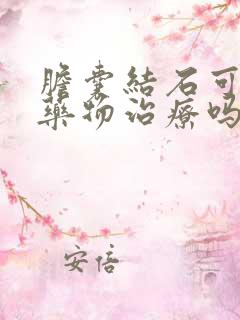 膽囊結石可
藥物治療嗎
安倍